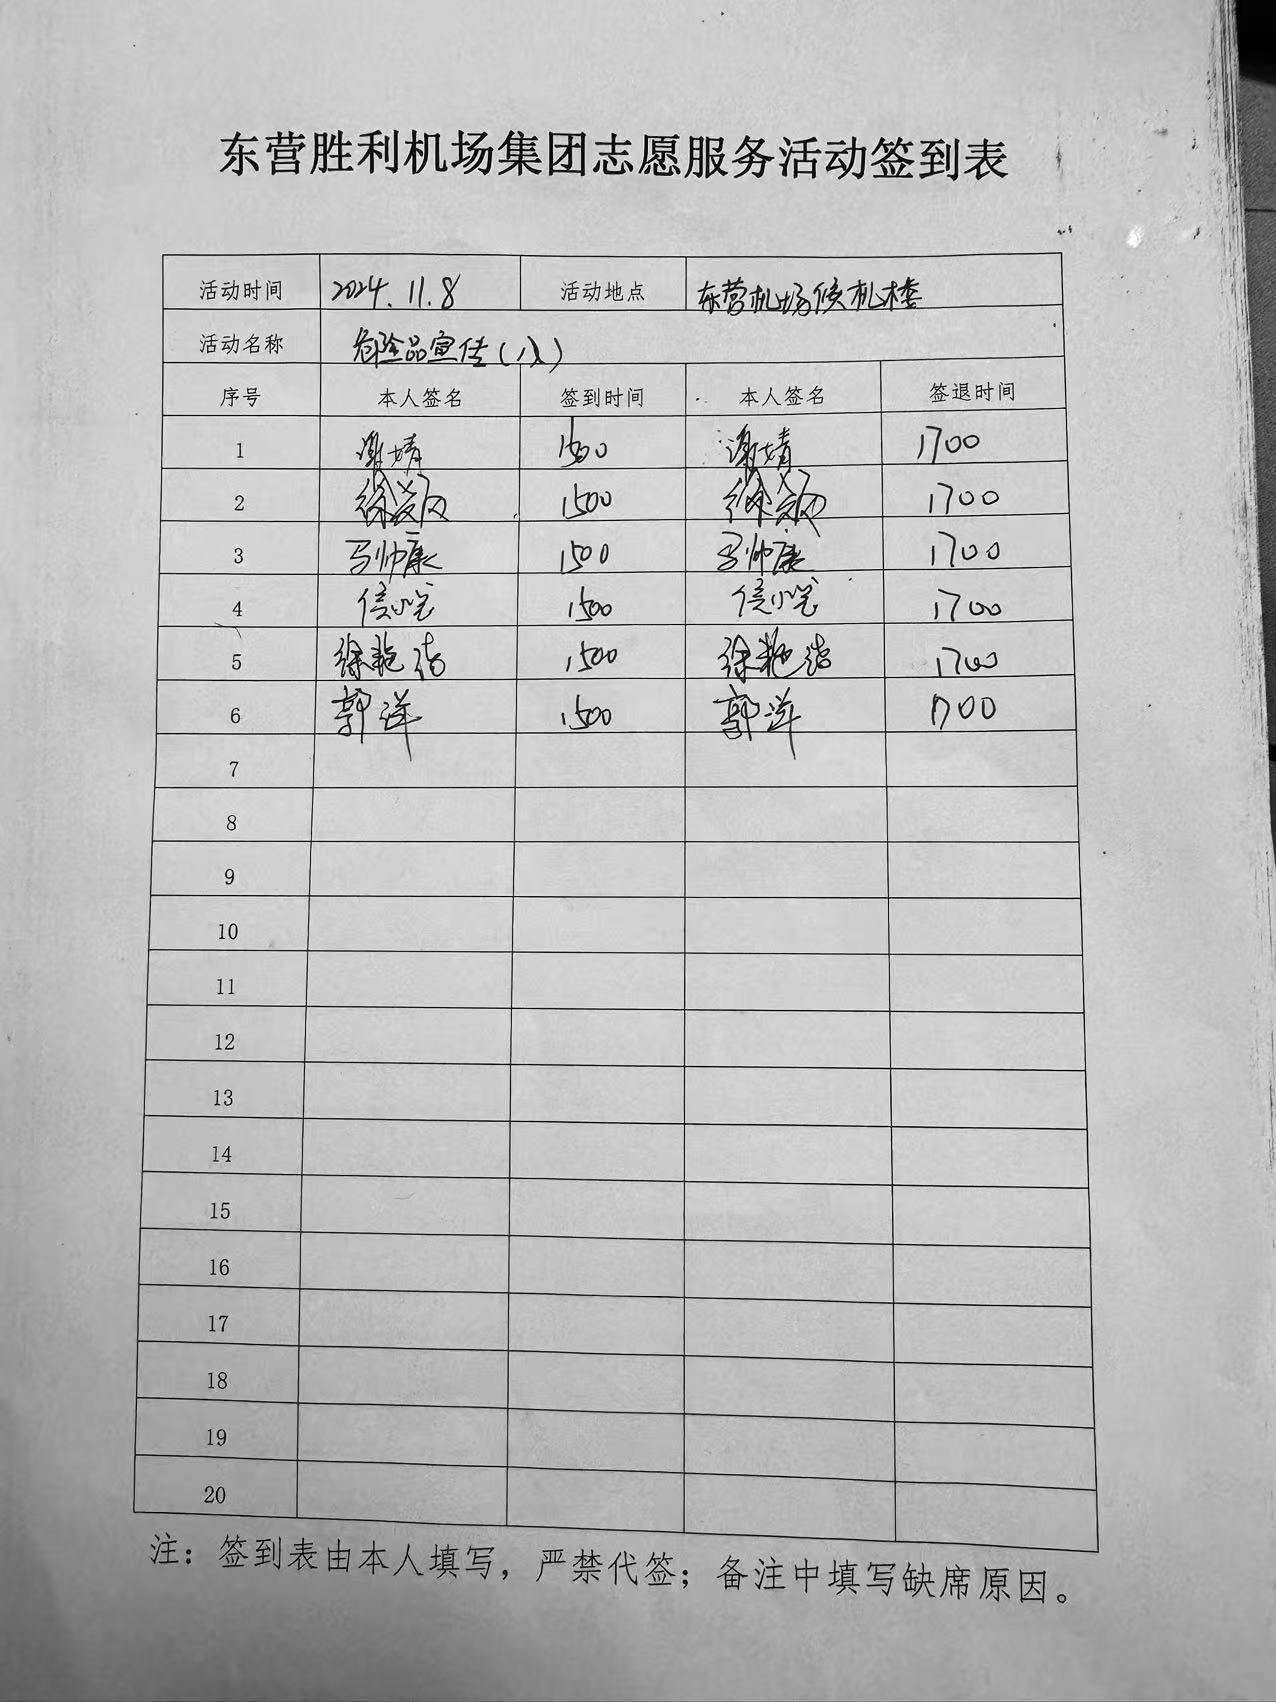 东营胜利机场集团志愿服务活动签到表
活动时间 2024.11.8 活动地点 东营机场候机楼
活动名称 危险品宣传(八)
序号 本人签名 签到时间 本人签名 签退时间
1 谢婧 1500 谢婧 1700
2 徐 1500 徐 1700
3 马帅康 1500 马帅康 1700
4 信小 1500 信小 1700
5 徐艳洁 1500 徐艳洁 1700
6 郭洋 1500 郭洋 1700
7
8
9
10
11
12
13
14
15
16
17
18
19
20
注：签到表由本人填写，严禁代签；备注中填写缺席原因。